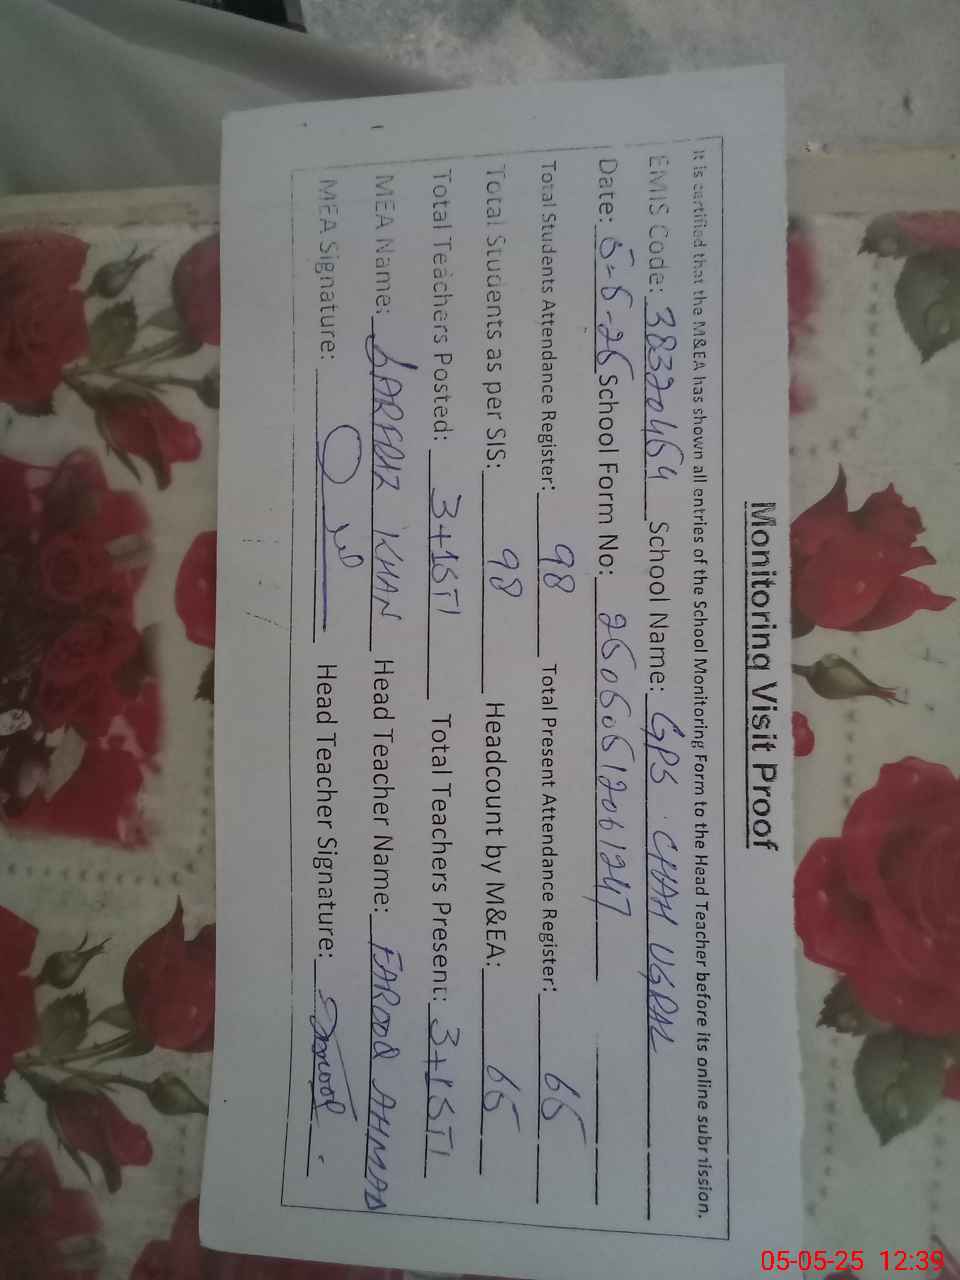 Monitoring Visit Proof
It is certified that the M&EA has shown all entries of the School Monitoring Form to the Head Teacher before its online submission.
EMIS Code: 38320454 School Name: GPS CHAH UGRAL
Date: 5-5-25 School Form No: 25050512061247
Total Students Attendance Register: 98 Total Present Attendance Register: 65
Total Students as per SIS: 98 Headcount by M&EA: 65
Total Teachers Posted: 3+1STI Total Teachers Present: 3+1STI
MEA Name: SARFRAZ KHAN Head Teacher Name: FAROOQ AHMAD
MEA Signature: Head Teacher Signature: Farooq
05-05-25 12:39